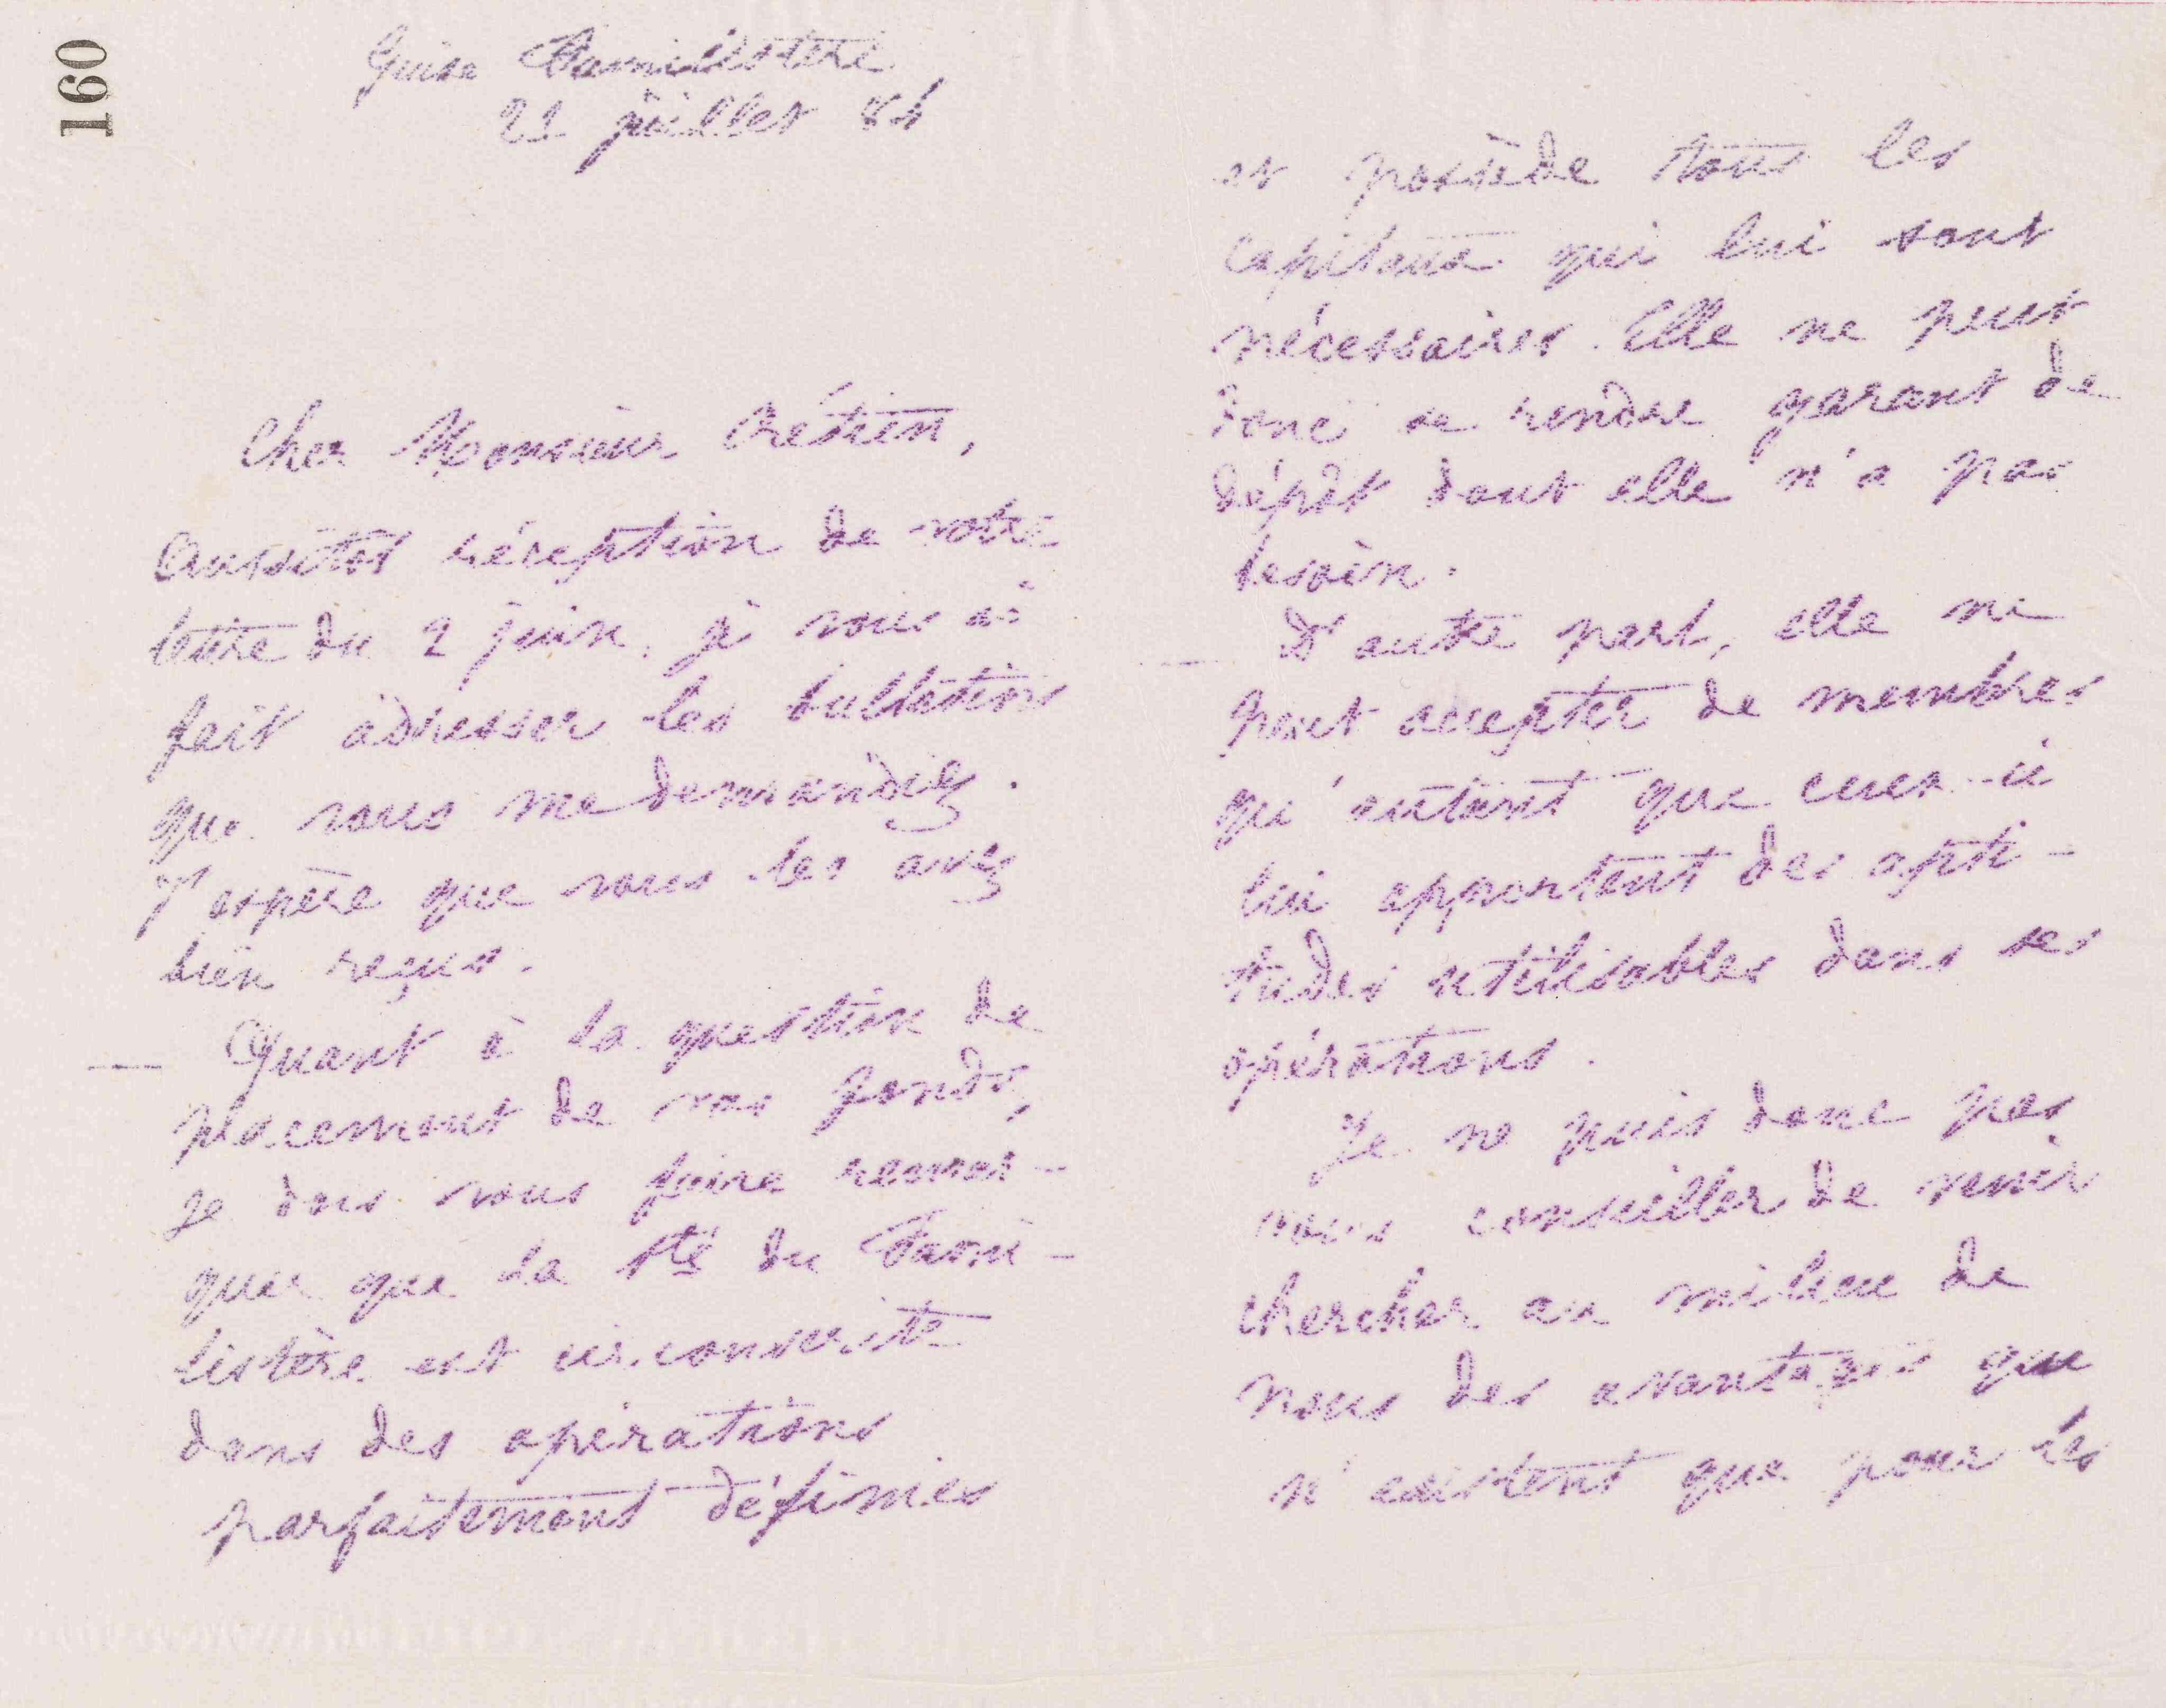 160
Guise Familistère
21 juillet 84
Cher Monsieur Crétien,
Aussitôt réception de votre
lettre du 2 juin, je vous ai
fait adresser les bulletins
que vous me demandiez.
J'espère que vous les avez
bien reçus.
— Quant à la question de
placement de vos fonds,
je dois vous faire remar-
quer que la Sté du Fami-
listère est circonscrite
dans des opérations
parfaitement définies
et possède tous les
capitaux qui lui sont
nécessaires. Elle ne peut
donc se rendre garant de
dépôt dont elle n'a pas
besoin.
— D'autre part, elle ne
peut accepter de membres
qu'autant que ceux-ci
lui apportent des apti-
tudes utilisables dans ses
opérations.
Je ne puis donc pas
vous conseiller de venir
chercher au milieu de
nous des avantages que
n'existent que pour les